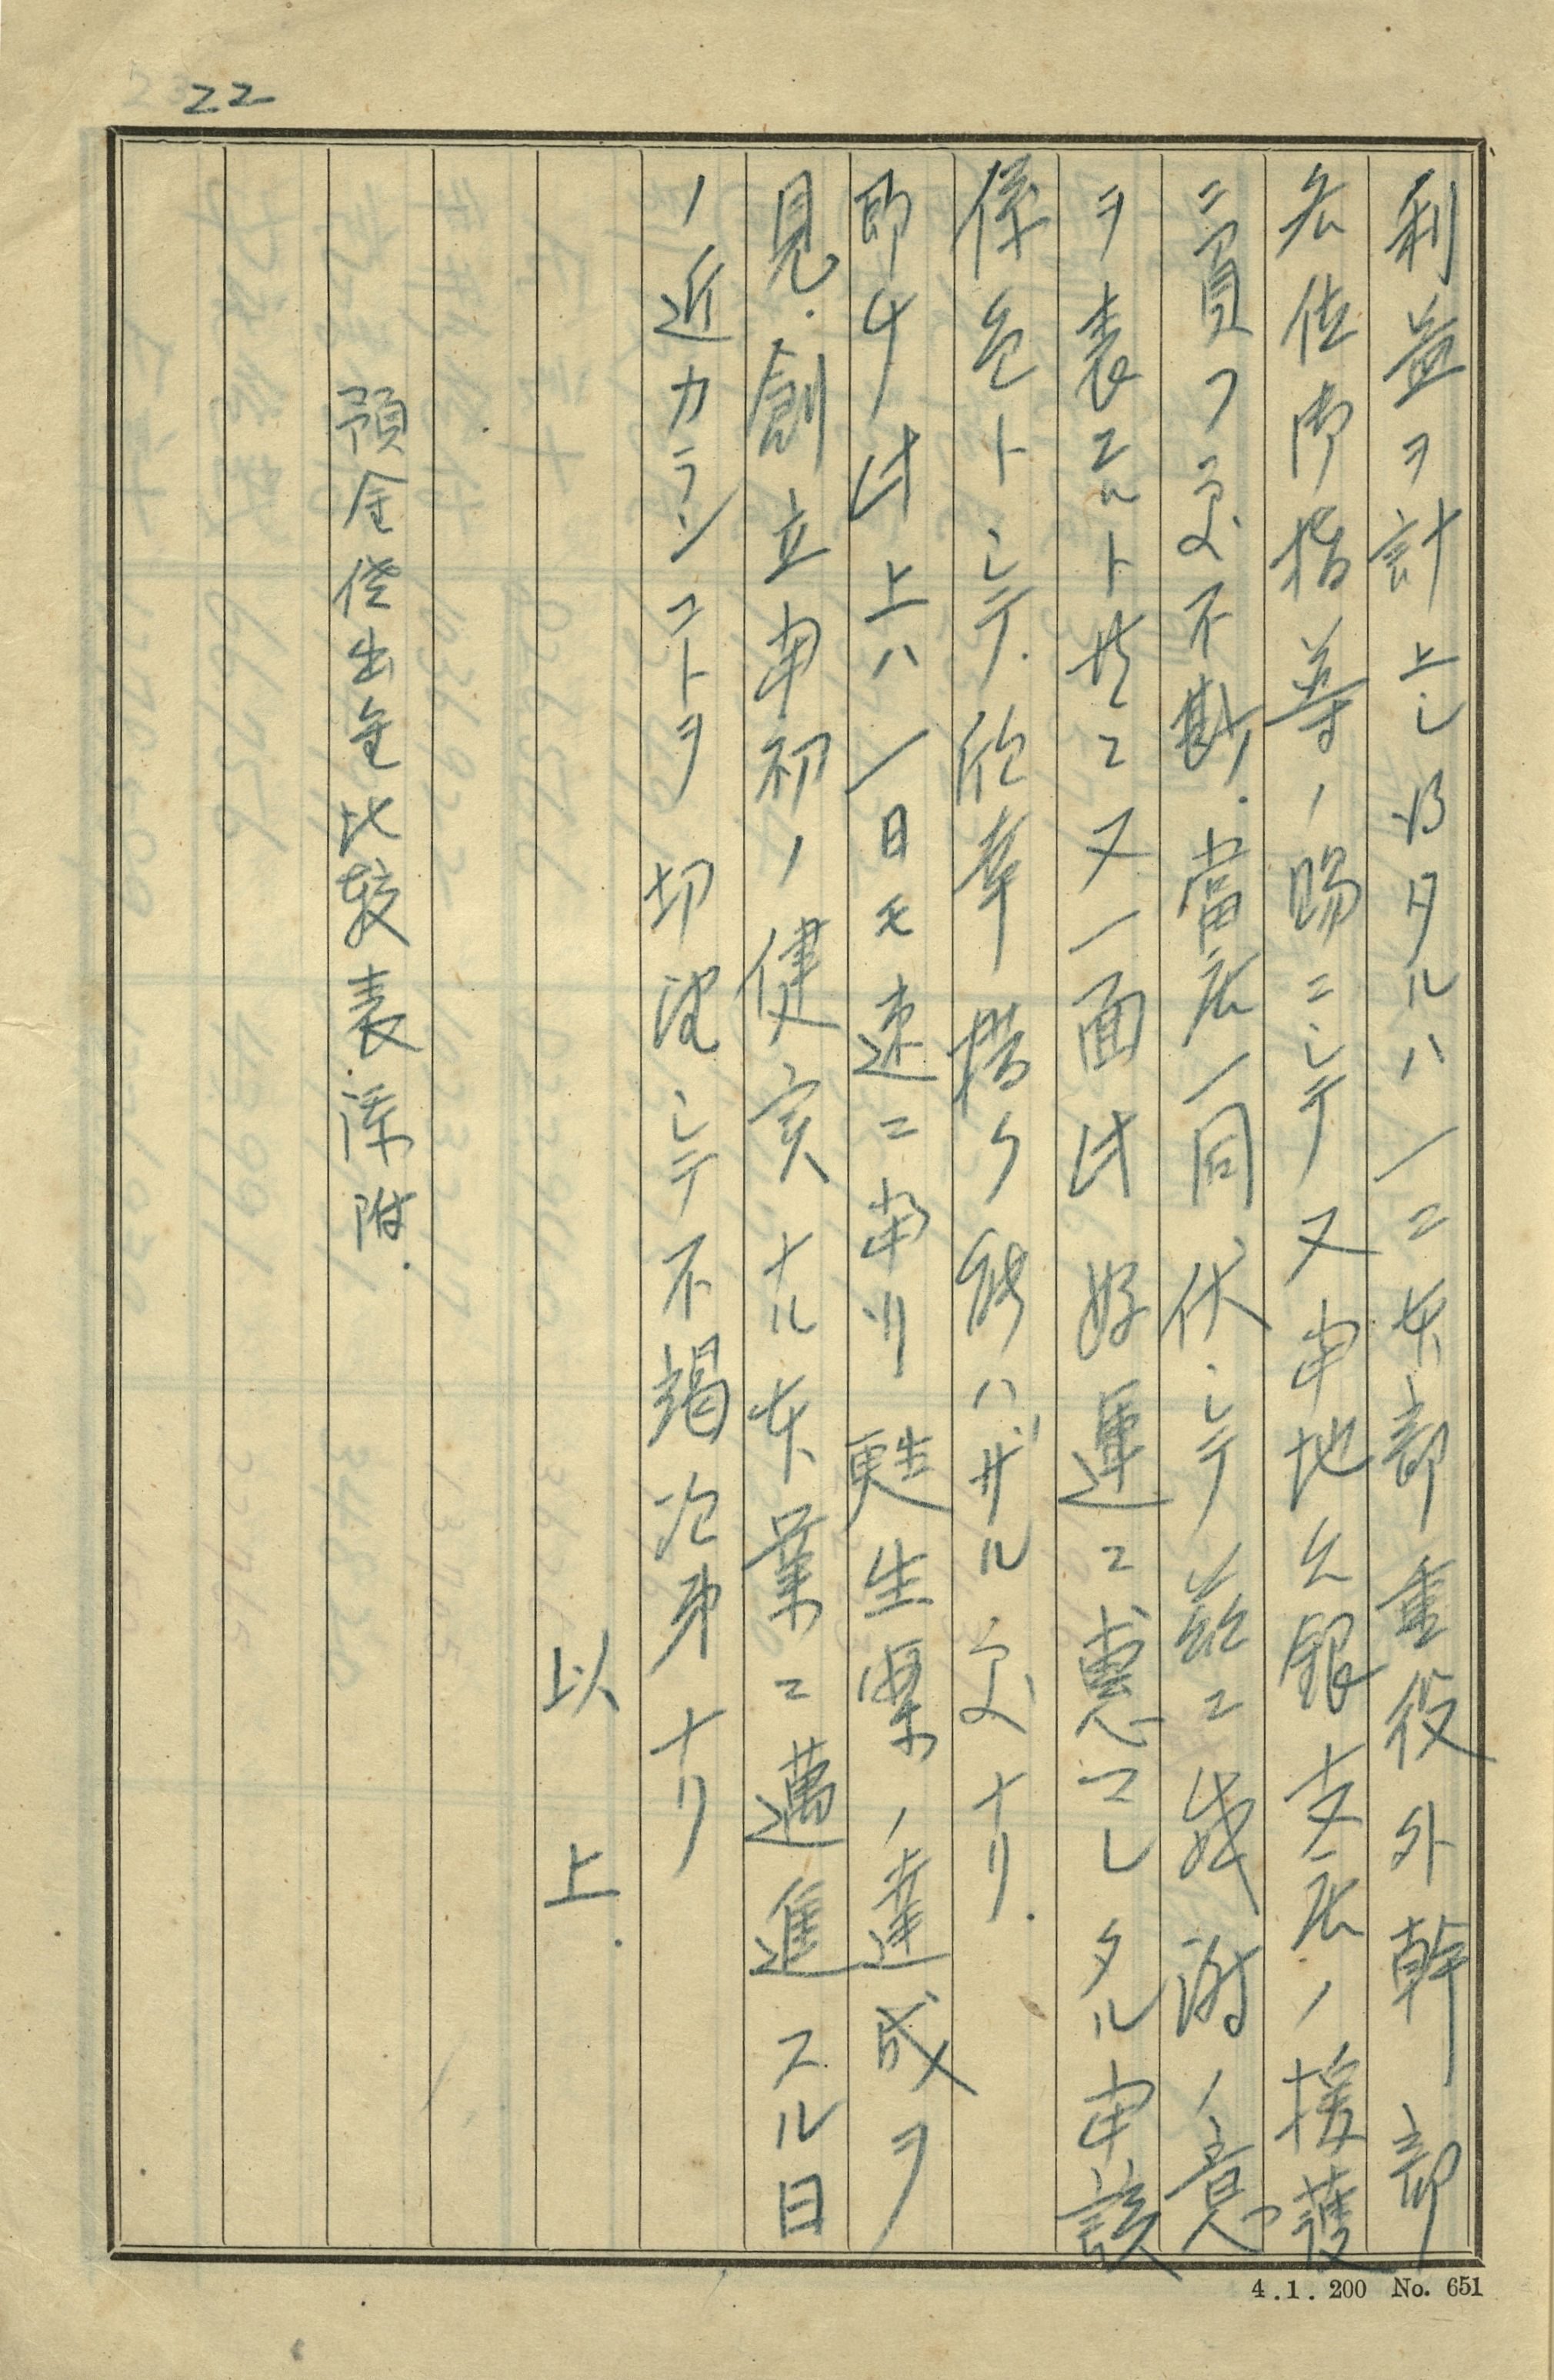 22
利益ヲ計上シ得タルハ一ニ本部重役外幹部
各位御指導ノ賜ニシテ又当地各銀支店ノ援護
ニ負フ処不尠、當店一同、伏シテ茲ニ感謝ノ意
ヲ表スルト共ニ又一面此好運ニ惠マレタル当該
係店トシテ、欣幸措ク能ハザル処ナリ.
即チ此上ハ一日モ速ニ当行更生案ノ達成ヲ
見、創立当初ノ健実ナル本業ニ邁進スル日
ノ近カランコトヲ切望シテ不竭次第ナリ
以上.
預金貸出金比較表添附.
4.1.200 No. 651